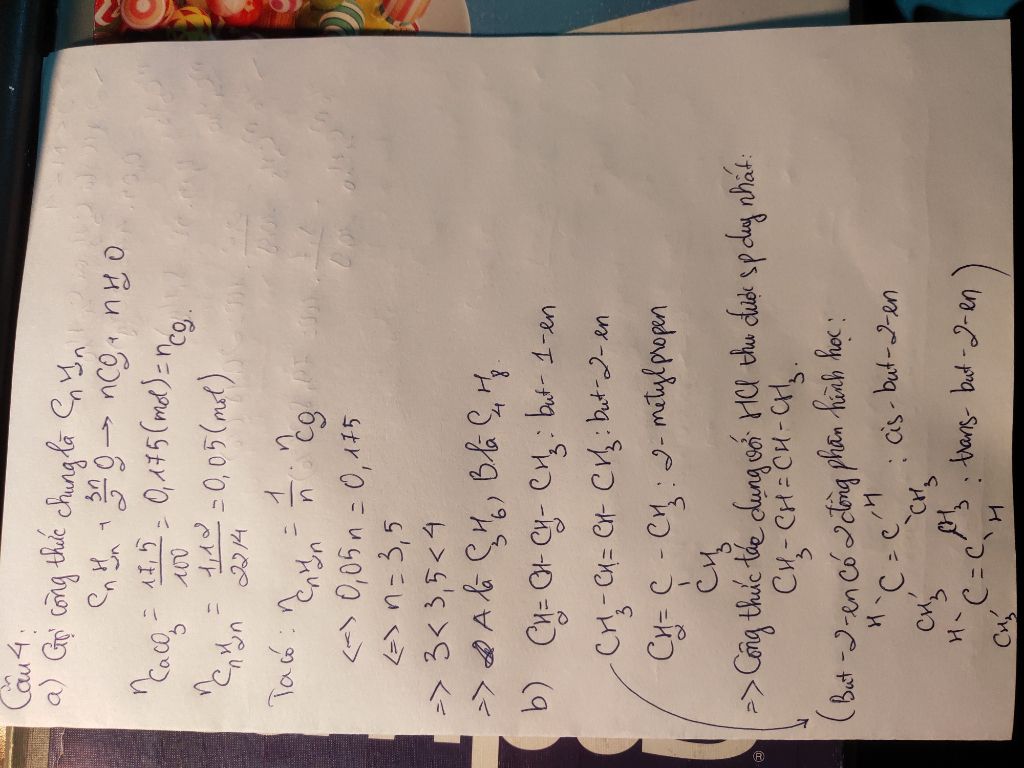 Câu 4:
a) Gọi công thức chung là CnH2n
CnH2n + 3n/2 O2 → nCO2 + nH2O
nCaCO3 = 17,5/100 = 0,175 (mol) = nCO2.
nCnH2n = 1,12/22,4 = 0,05 (mol)
Ta có: nCnH2n = 1/n . nCO2
<=> 0,05n = 0,175
<=> n = 3,5
=> 3 < 3,5 < 4
=> A là C3H6, B là C4H8
b) CH2=CH-CH2-CH3: but-1-en
CH3-CH=CH-CH3: but-2-en
CH2=C-CH3: 2-metylpropen
CH3
=> Công thức tác dụng với HCl thu được sp duy nhất:
CH3-CH=CH-CH3.
(But-2-en có 2 đồng phân hình học:
H H
C=C : cis-but-2-en
CH3 CH3
H CH3
C=C : trans-but-2-en)
CH3 H
®